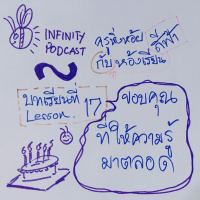 INFINITY
PODCAST
ครูหิ่งห้อย ที่ฟ้า
กับ ห้องเรียน
บทเรียนที่ 17
Lesson.
ขอบคุณ
ที่ให้ความรู้
มาตลอด